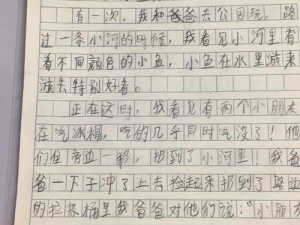 有一次，我和爸爸去公园玩，路
过一条小河的时候，我看见小河里有
着不同颜色的小鱼，小鱼在水里游来
游去特别好看。
正在这时，我看见有两个小朋友
在吃冰棍，吃的几乎同时吃没了！他
们在旁边一扔，扔到了小河里！我爸
爸一下子冲了上去捡起来扔到了旁边
的垃圾桶里我爸爸对他们说："小朋友